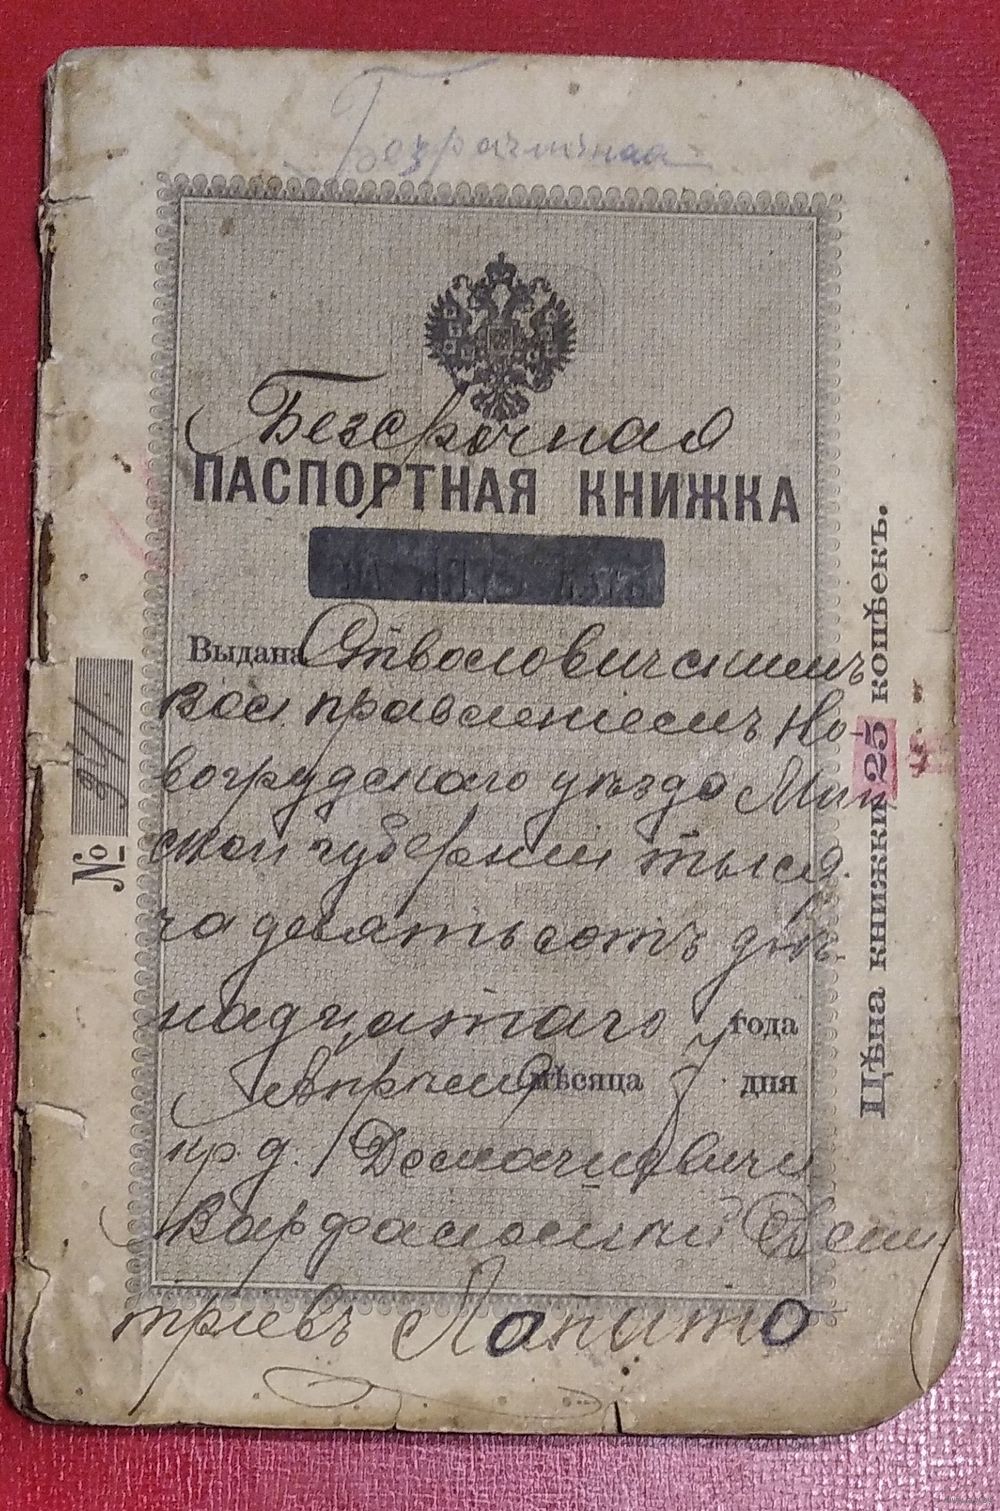 Безсрочная
Безсрочная
ПАСПОРТНАЯ КНИЖКА
Выдана Стволовичскимъ
вол правленіемъ Но-
вогрудскаго уѣзда Мин
ской губерніи тыся
ча девятьсотъ двѣ
надцатаго года
Апрѣля мѣсяца 7 дня
кр. д.
Варфаломей Дми
тріевъ Лапато
№ 341
Цѣна книжки 25 копѣекъ.